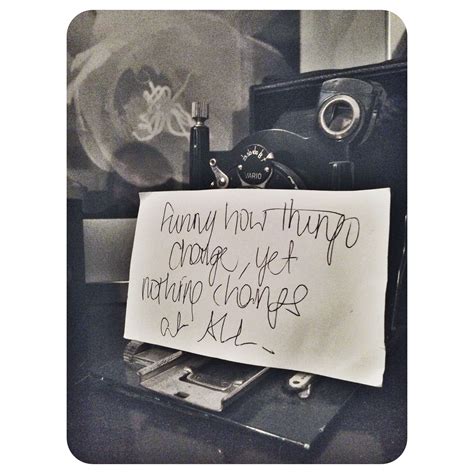 VARIO
Funny how things
change, yet
nothing changes
at ALL.